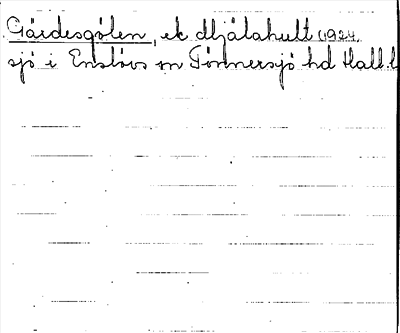 Gårdesgölen, ek Mjälahult 1924.
sjö i Enslövs sn Tönnersjö hd Hall. l